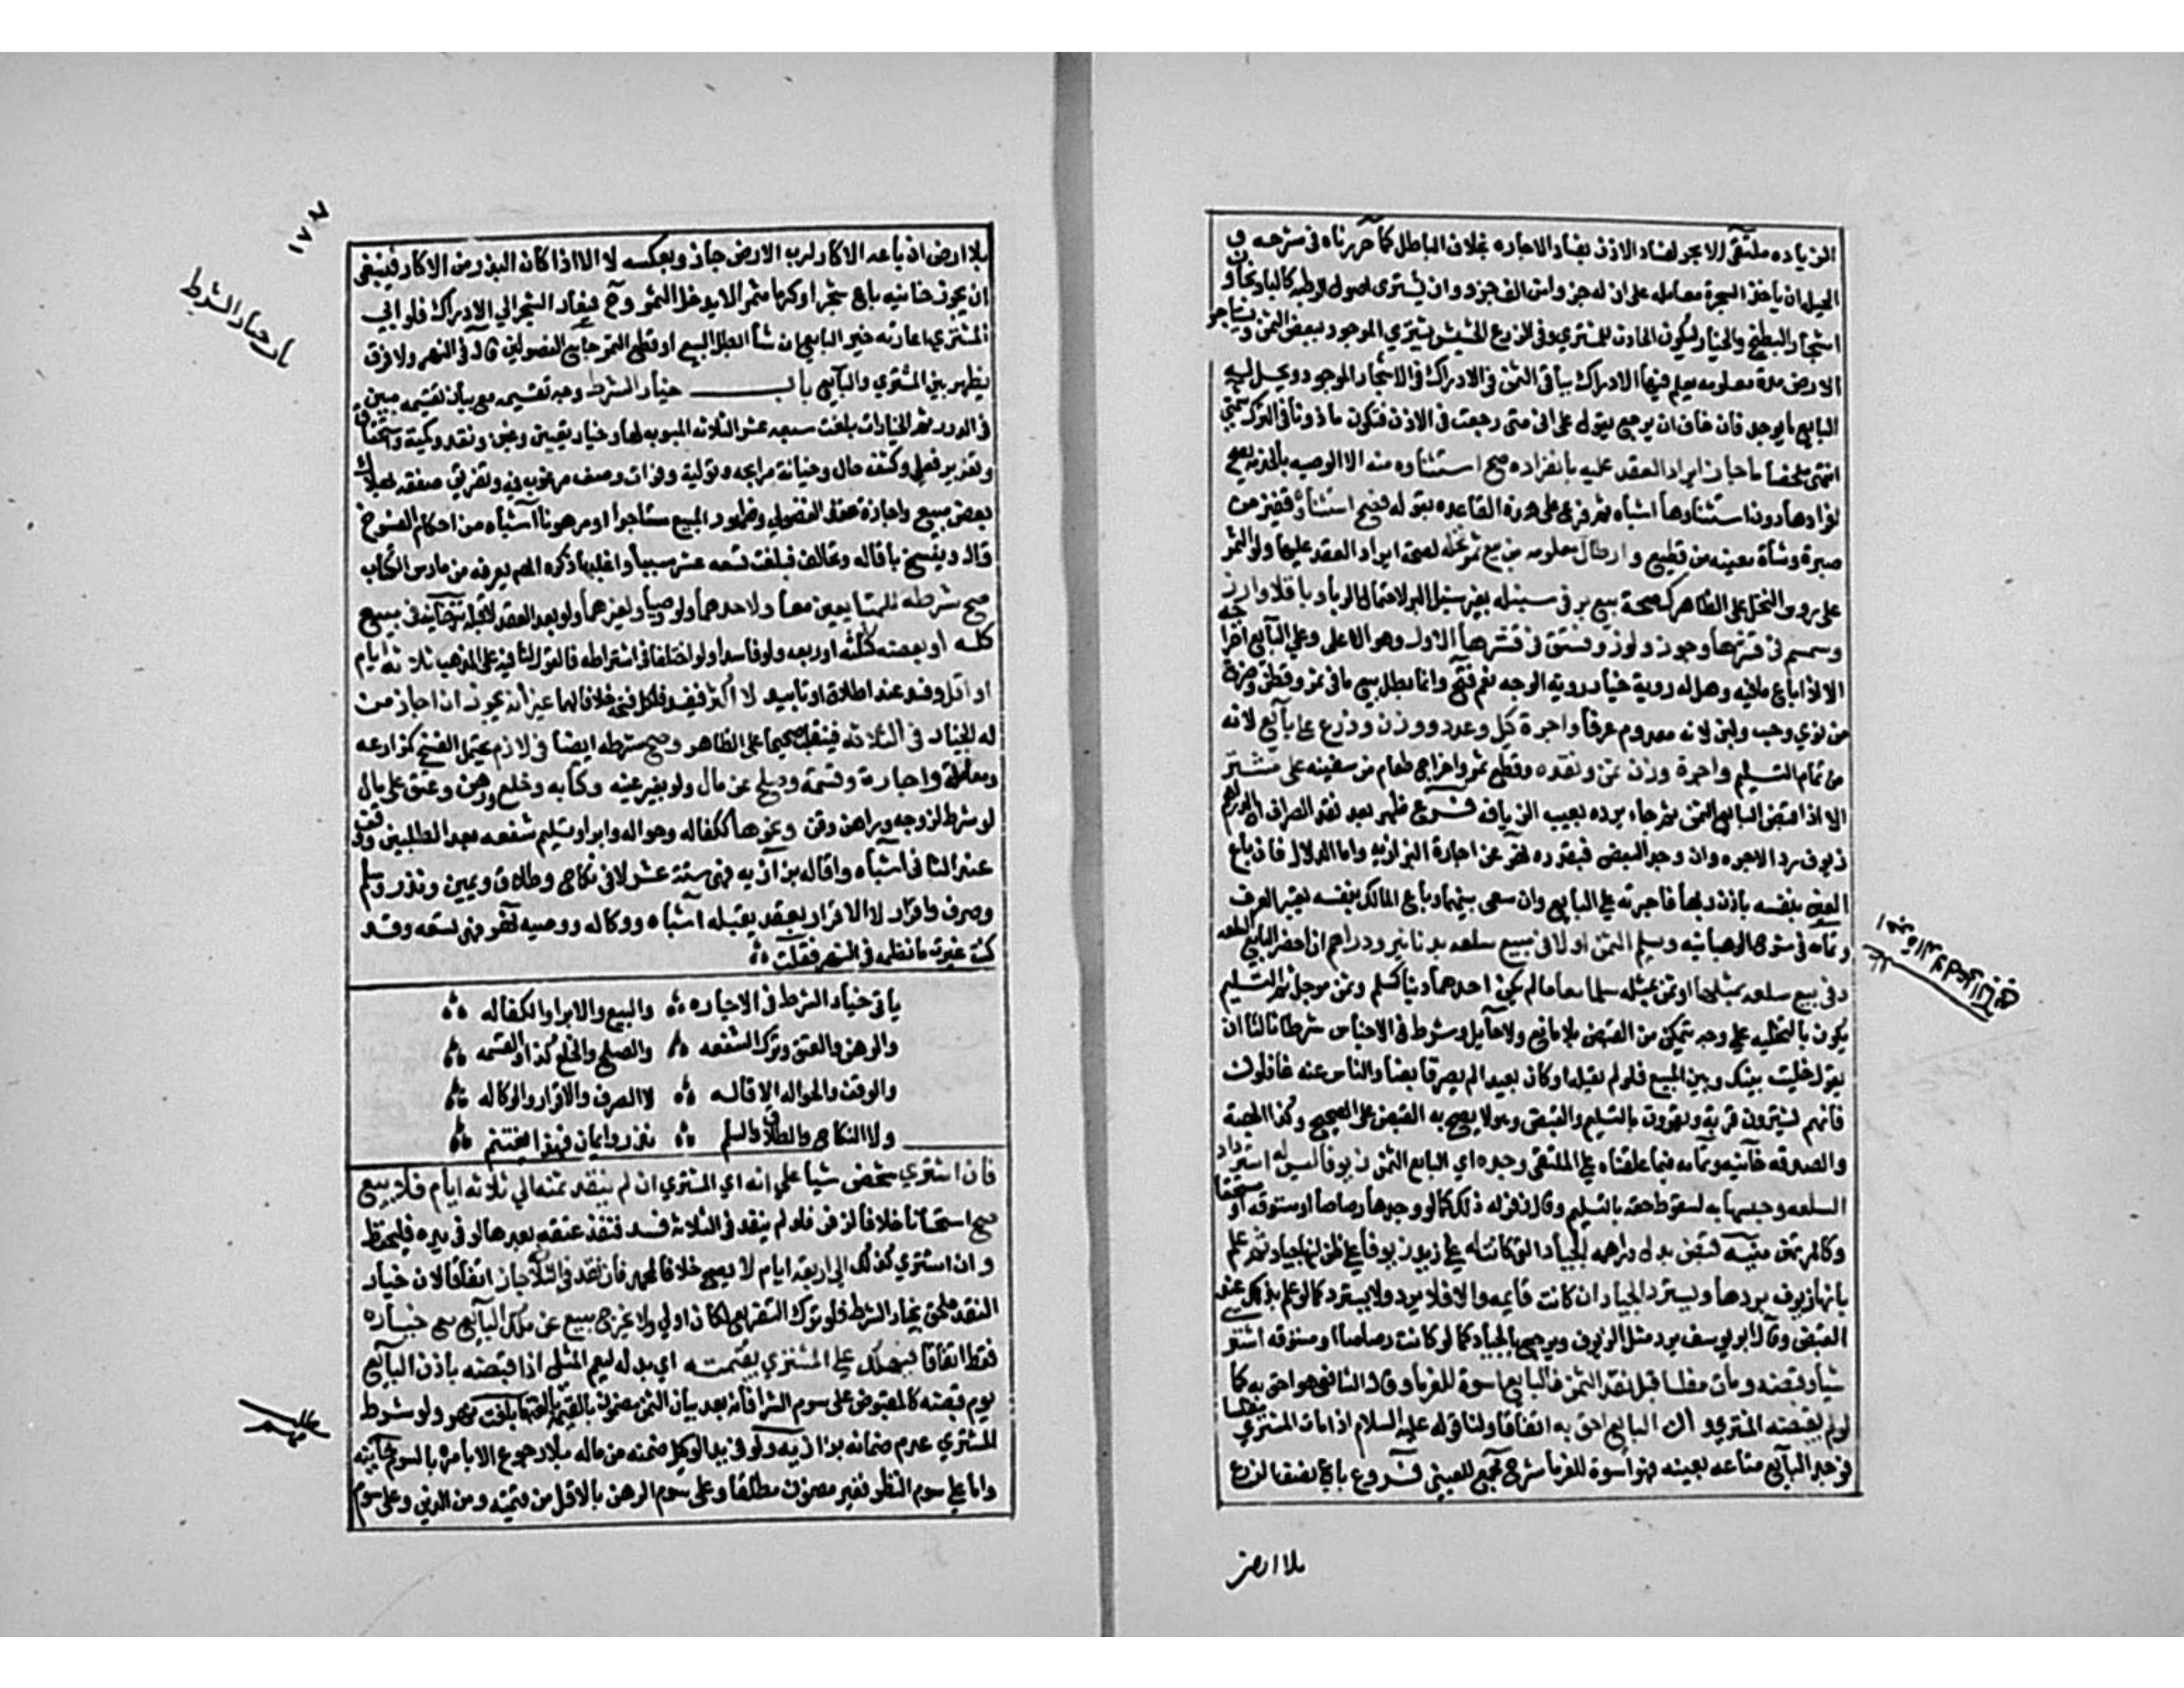 الزياده ملتقى الا يجر لفساد الاذن بفساد الاجاره بخلاف الباطل كما حررناه في شرحه و
الحيله ان ياخذ الشجرة معامله على ان له جزء من الف جزء وان يشتري اصول الرطبه كالباذنجان و
اشجار البطيخ والخيار ليكون الحادث للمشتري وفي الزرع الحشيش يشتري الموجود ببعض الثمن ويستاجر
الارض مدة معلومه يعلم فيها الادراك بباقي الثمن في الاشجار الموجود ويحل له
البايع ما يوجد فان خاف ان يرجع يقول على اني متى رجعت في الاذن فتكون ماذونا في الترك شمني
انتهى ملخصا ما جاز ايراد العقد عليه بانفراده صح استثناوه منه الا الوصيه بالخدمة يصح
افرادها دون استثنادها اشباه ثم فرع على هذه القاعده بقوله فصح استثناء قفيز من
صبرة وشاة معينه من قطيع وارطال معلومه من بيع ثمر نخله لصحة ايراد العقد عليها ولو الثمر
على روس النخل على الظاهر كصحة بيع بر في سنبله بغير سنبل البر لاحتمال الربا وباقلا وارز
وسمسم في قشرها وجوز ولوز وفستق في قشرها الاول وهو الاعلى وعلى البايع اخراجه
الا اذا باع بما فيه وهل له روية خيار روية الوجه نعم فتح وانما بطل بيع ما في تمر وقطن وضرع
من نوي وحب ولبن لانه معدوم عرفا واجرة كيل وعدد ووزن وذرع على بايع لانه
من تمام التسليم واجرة وزن ثمن ونقده وقطع ثمر واخراج طعام من سفينه على مشتر
الا اذا قبض البايع الثمن ثم جاء يرده بعيب الزيافه فـــروع ظهر بعد نقد الصراف ان الدراهم
زيوف رد الاجره وان وجد البعض فبقدره نهر عن اجارة البزازيه واما الدلال فان باع
العين بنفسه باذن ربها فاجرته على البايع وان سعى بينهما وباع المالك بنفسه يعتبر العرف
وتمامه في شرح الوهبانيه وسلم الثمن اولا في بيع سلعه بدنانير ودراهم ان احضر البايع السلعه
وفي بيع سلعه بمثلها او ثمن بمثله سلما معا مالم يكن احدهما دينا كسلم وثمن موجل ثم التسليم
يكون بالتخليه على وجه يتمكن من القبض بلا مانع ولا حايل وشرط في الاجناس شرطا ثالثا ان
يقول خليت بينك وبين المبيع فلو لم يقله او كان بعيدا لم يصر قابضا والناس عنه غافلون
فانهم يشترون قرية ويقرون بالتسليم والقبض وهو لا يصح به القبض على الصحيح وكذا الهبة
والصدقه خانيه وتمامه فيما علقناه على الملتقى وجد اي البايع الثمن زيوفا ليس له استرداد
السلعه وحبسها به لسقوط حقه بالتسليم وقال زفر له ذلك كما لو وجدها رصاصا او ستوقه او مستحقا
وكالمرتهن منيه قبض بدل دراهمه الجياد التي كانت له على زيد زيوفا على ظن انها جياد ثم علم
بانها زيوف يردها ويسترد الجياد ان كانت قايمه والا فلا يرد ولا يسترد كما لو علم بذلك عند
القبض وقال ابو يوسف يرد مثل الزيوف ويرجع بالجياد كما لو كانت رصاصا او ستوقه اشتر
شيا وقبضه ومات مفلسا قبل نقد الثمن فالبايع اسوة للغرماء وقال الشافعي هو احق به كما
لو لم يقبضه المشتري فان البايع احق به اتفاقا ولنا قوله عليه السلام اذا مات المشتري مفلسا
فوجد البايع متاعه بعينه فهو اسوة للغرما شرح مجمع للعيني فـــروع باع نصف الزرع
بلا ارض
١٧٣
باب خيار الشرط
بلا ارض ان باعه الاكار لرب الارض جاز وبعكسه لا الا اذا كان البذر من الاكار فينبغي
ان يجوز خانيه باع شجرا او كرما مثمرا لا يدخل الثمر وح فيعاد الشجر الى الادراك فلو ابى
المشتري اعارته خير البايع ان شا ابطل البيع او قطع الثمر جامع الفصولين قال في النهر ولا فرق
يظهر بين المشتري والبايع بابـــــــ خيار الشرط وجه تقسيمه مع بيان تقسيمه مبين
في الدرر ثم الخيارات بلغت سبعه عشر الثلاثه المبوب لها وخيار تعيين وغبن ونقد وكمية واستحقاق
وتغرير فعلي وكشف حال وخيانة مرابحه وتولية وفوات وصف مرغوب فيه وتفريق صفقه بهلاك
بعض مبيع واجازة عقد الفضولي وظهور المبيع مستاجرا او مرهونا اشباه من احكام الفسوخ
قال ويفسخ باقاله وتحالف فبلغت تسعه عشر سببا واغلبها ذكره المص يعرفه من مارس الكتاب
صح شرطه للمتبايعين معا ولاحدهما ولو وصيا ولغيرهما ولو بعد العقد لا قبله تترخانيه في مبيع
كله او بعضه كثلثه او ربعه ولو فاسدا ولو اختلفا في اشتراطه فالقول لنافيه على المذهب ثلاثه ايام
او اقل وفسد عند اطلاق او تابيد لا اكثر فيفسد فلكل فسخه خلافا لهما غير انه يجوز ان اجاز من
له الخيار في الثلاثه فينقلب صحيحا على الظاهر وصح شرطه ايضا في لازم يحتمل الفسخ كمزارعه
ومعاملة واجارة وقسمة وصلح عن مال ولو بغير عينه وكتابه وخلع ورهن وعتق على مال
لو شرط لزوجه وراهن وقن ونحوها ككفاله وحواله وابراء وتسليم شفعه بعد الطلبين ووقف
عند الثاني اشباه واقاله بزازيه فهي ستة عشر لا في نكاح وطلاق ويمين ونذر وسلم
وصرف واقرار الا الاقرار بعقد يقبله اشباه ووكاله ووصيه نهر فهي تسعه وقد
كنت غيرت ما نظمه في النهر فقلت
ياتي خيار الشرط في الاجاره والبيع والابراء والكفاله
والرهن والعتق وترك الشفعه والصلح والخلع كذا والقسمه
والوقف والحواله الاقاله لا الصرف والاقرار والوكاله
ولا النكاح والطلاق والسلم نذر وايمان فهذا يغتنم
فان اشتري شخص شيا على انه اي المشتري ان لم ينقد ثمنه الى ثلاثه ايام فلا بيع
صح استحسانا خلافا لزفر فلو لم ينقد في الثلاثه فسد فنفذ عتقه بعدها لو في يده فليحفظ
وان اشترى كذلك الى اربعة ايام لا يصح خلافا لمحمد فان نقد في الثلاث جاز اتفاقا لان خيار
النقد ملحق بخيار الشرط فلو ترك التفريع لكان اولى ولا يخرج مبيع عن ملك البايع مع خياره
فقط اتفاقا فيهلك على المشتري بقيمته اي بدله ليعم المثلي اذا قبضه باذن البايع
يوم قبضه كالمقبوض على سوم الشرا فانه بعد بيان الثمن مضمون بالقيمة بالغة ما بلغت نهر ولو شرط
المشتري عدم ضمانه بزازيه ولو في يد الوكيل ضمنه من ماله بلا رجوع الا بامره بالسوم خانيه
واما على سوم النظر فغير مضمون مطلقا وعلى سوم الرهن بالاقل من قيمته ومن الدين وعلى سوم